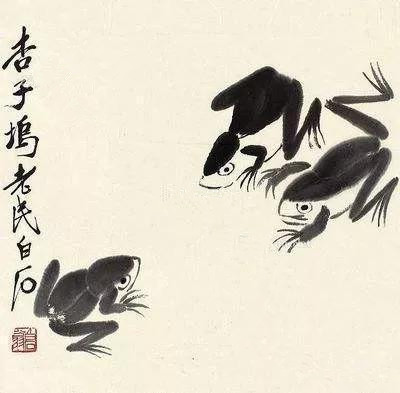 杏子坞老民白石